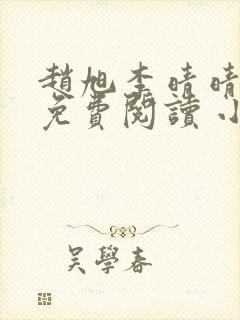 趙旭李晴晴
免費閱讀小
吳學春